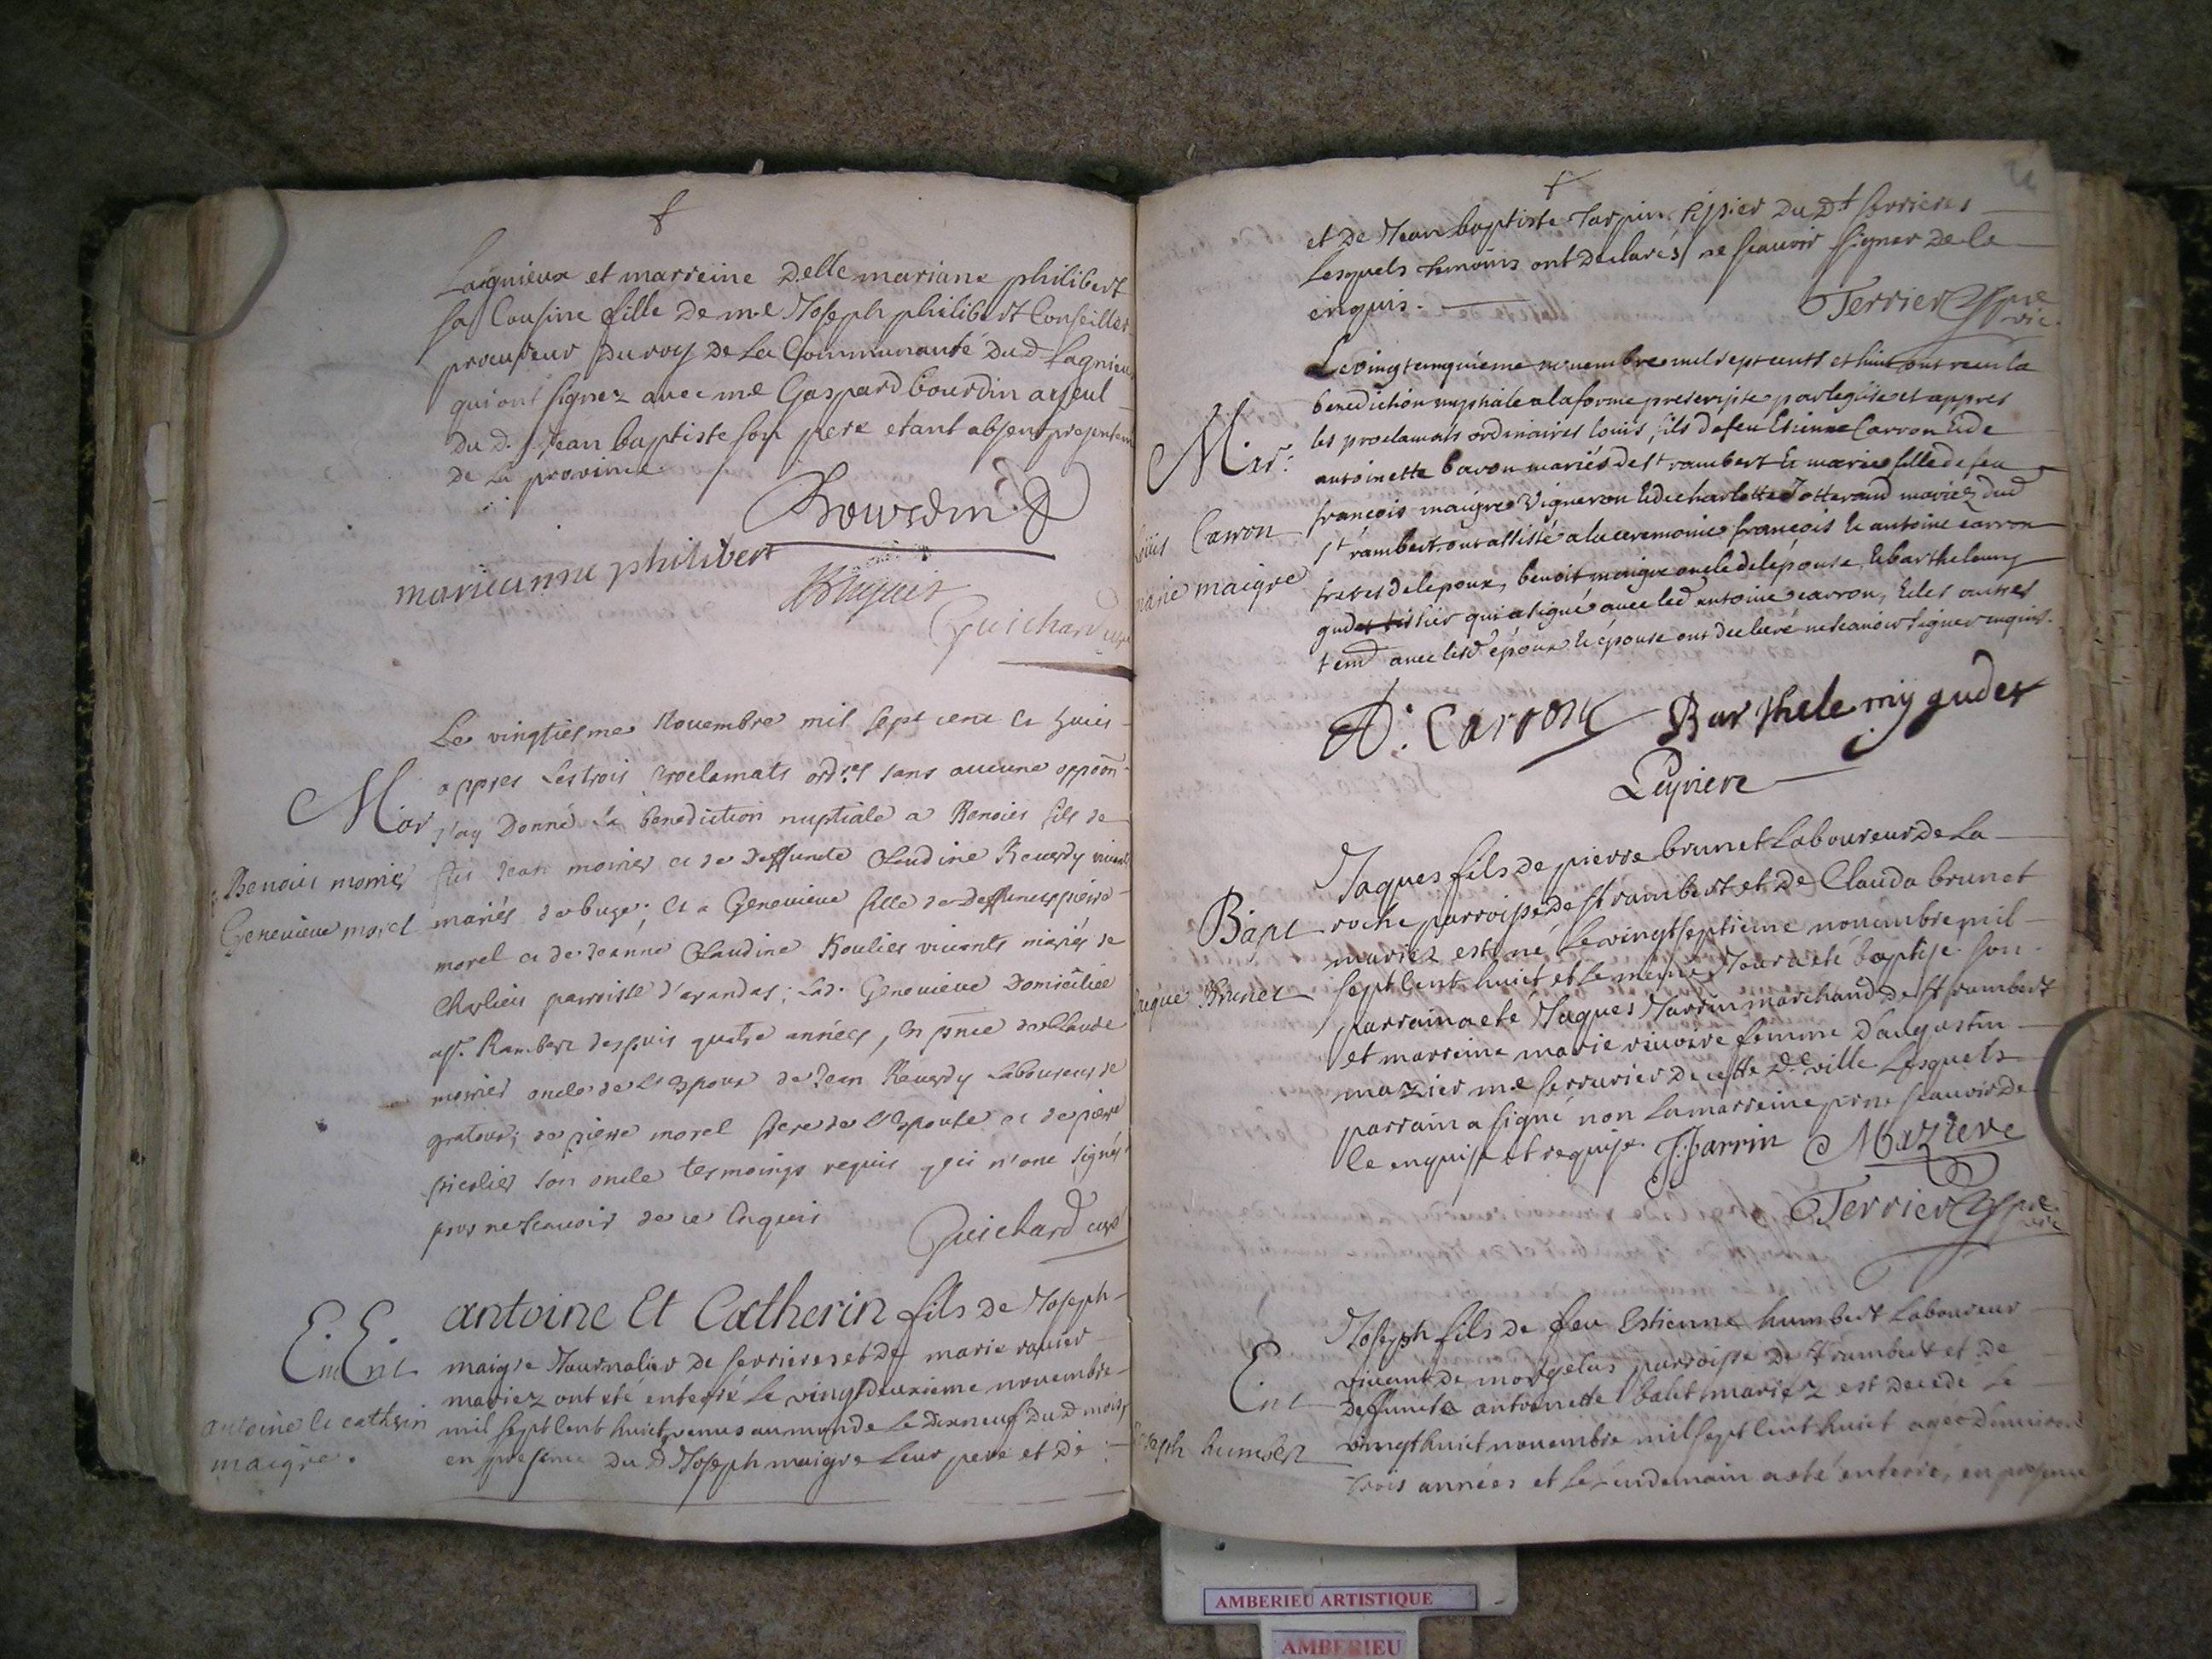 Lagnieux et marreine delle mariane philibert
sa Cousine fille de me Joseph philibert Conseiller
procureur du roy de La Communauté dud Lagnieux
qui ont signez avec me Gaspard bourdin ayeul
du d. s. Jean baptiste son pere etant absent
de La province.
Bourdin
marieanne philibert
Guichard curé
Le vingtiesme Novembre mil sept cent et huict
Mar
appres Les trois proclamats ordres sans aucune oppoon
j'ay Donné la benediction nuptiale a Benoict fils de
Benoict monier
feu Jean monier et de deffuncte Claudine Reverdy vivants
Genevieve morel
mariés de buge; et a Genevieve fille de deffunct pierre
morel et de Jeanne Claudine vivants mariés de
Charlieu parroisse d'arandas; lad. Genevieve Domiciliée
a st. Rambert despuis quatre années, en pnce de Claude
monier oncle de l'Espoux de Jean Reverdy Laboureur de
de pierre morel frere de l'Espouse et de pierre
son oncle tesmoings requis qui n'ont signés
pour ne scavoir de ce Enquis
Guichard curé
Ent Ent
antoine Et Catherin fils de Joseph
maigre Journalier de serrieres et de marie
mariez ont eté enterré Le vingtdeuxieme novembre
antoine et catherin
mil sept Cent huict venus au monde Le dixneuf du d mois
maigre.
en presence du d Joseph maigre Leur pere et de
et de Jean baptiste Tarpin du dt serrieres
Lesquels temoins ont declarés ne scavoir signer de ce
enquis.
Terrier ptre vic.
Le vingt cinquieme novembre mil sept cents et huit ont receu la
benediction nuptiale a la forme prescripte par leglise et appres
Mar:
les proclamats ordinaires louis, fils de feu Etienne Carron et de
antoinette baron mariés de st rambert et marie fille de feu
françois maigre vigneron et de charlotte Jotterand mariez dud
Loüis Carron
st rambert. ont assisté a la ceremonie françois et antoine carron
marie maigre
freres de lepoux, benoit maigre oncle de lépouse, et barthelemy
gudet qui a signé avec led antoine carron, et les autres
tem avec lesd époux et épouse ont declaré ne scavoir signer enquis.
A. Carron Barthelemiy gudet
Leyriere
Jaques fils de pierre brunet Laboureur de La
Bapt
roche parroisse de st rambert et de Clauda brunet
mariez est né Le vingtseptieme novembre mil
Jaque Brunet
sept Cent huict et Le meme Jour a eté baptise. son
parrain a eté Jaques Jarrin marchand de st rambert
et marreine marie femme d'augustin
mazier me serrurier de cette de ville Lesquels
parrain a signé non La marreine pr ne scauoir de
Ce enquise et requise. J. Jarrin Maziere
Terrier ptre vic
Joseph fils de feu Estienne humbert Laboureur
vivant de morgelas parroisse de st rambert et de
Ent
deffuncte antoinette mariez est decede Le
Joseph humbert
vingthuict novembre mil sept Cent huict agé d'environ
trois années et Le Lendemain a eté enterré, en presence
AMBERIEU ARTISTIQUE
AMBERIEU